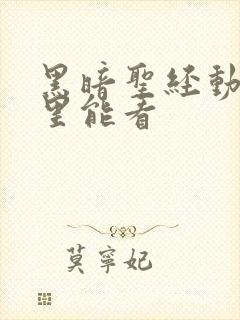 黑暗聖経動
里能看
莫寧妃